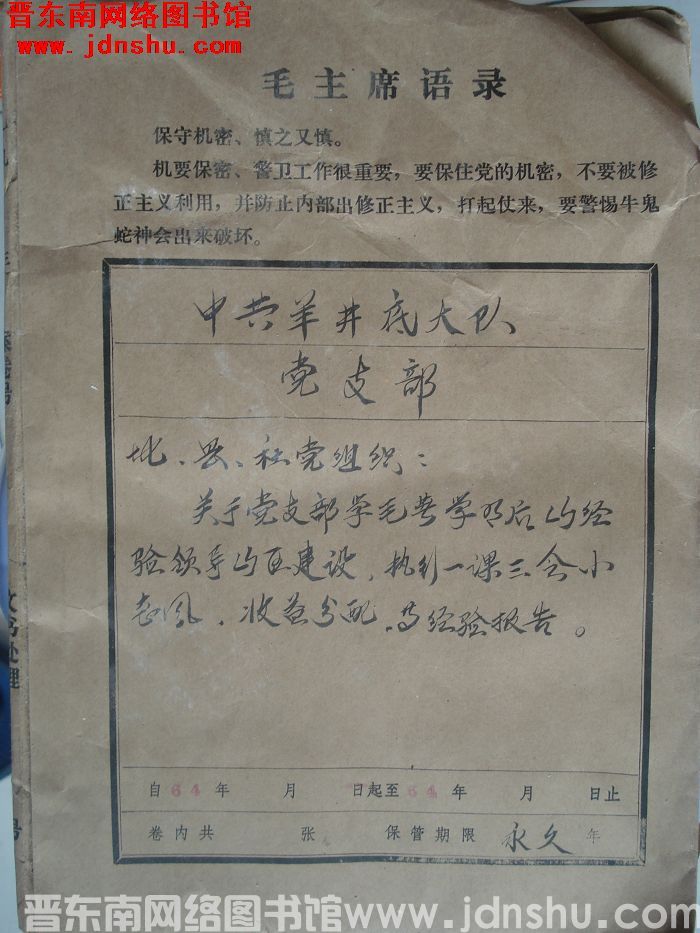 晋东南网络图书馆
www.jdnshu.com
毛主席语录
保守机密、慎之又慎。
机要保密、警卫工作很重要，要保住党的机密，不要被修
正主义利用，并防止内部出修正主义，打起仗来，要警惕牛鬼
蛇神会出来破坏。
中共羊井底大队
党支部
地、县、社党组织：
关于党支部学毛著学后的经
验领导的建设，执行一课三会小
风，收益分配，等经验报告。
自64年 月 日起至64年 月 日止
卷内共 张 保管期限 永久 年
文书处理
号
晋东南网络图书馆www.jdnshu.com